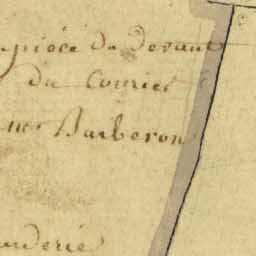 pièce de devant
du Couries
mr Barberon
anderie